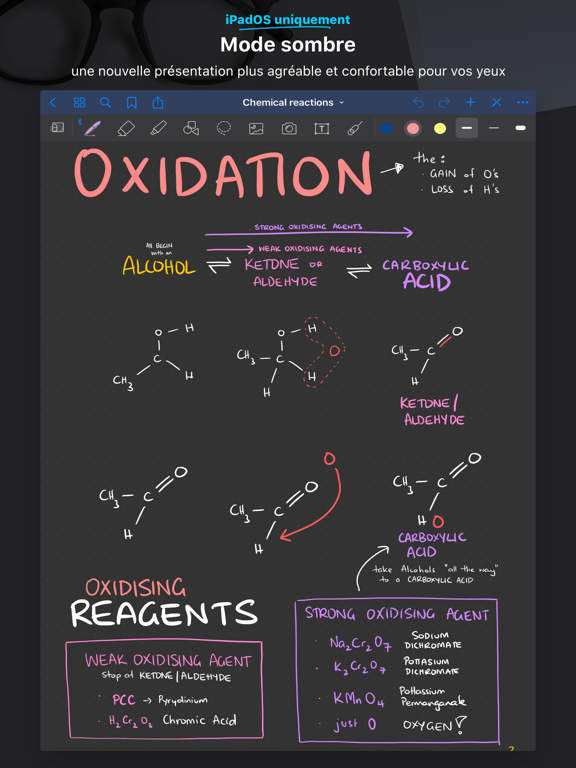 iPadOS uniquement
Mode sombre
une nouvelle présentation plus agréable et confortable pour vos yeux
Chemical reactions
T
OXIDATION
the:
· GAIN of O's
· LOSS of H's
STRONG OXIDISING AGENTS
All BEGIN
with an
WEAK OXIDISING AGENTS
ALCOHOL ⇌ KETONE or ⇌ CARBOXYLIC
ALDEHYDE ACID
O – H
C
CH3 H
O – H
O
CH3 – C
H
H
O
CH3 – C
H
KETONE/
ALDEHYDE
O
CH3 – C
H
O
O
CH3 – C
H
O
CH3 – C
H O
CARBOXYLIC
ACID
take Alcohols "all the way"
to a CARBOXYLIC ACID
OXIDISING
REAGENTS
WEAK OXIDISING AGENT
Stop at KETONE/ALDEHYDE
· PCC → Pyrydinium
· H2Cr2O3 Chromic Acid
STRONG OXIDISING AGENT
· Na2Cr2O7 SODIUM DICHROMATE
· K2Cr2O7 POTTASIUM DICHROMATE
· KMnO4 Pottassium Permanganate
· just O OXYGEN!
2